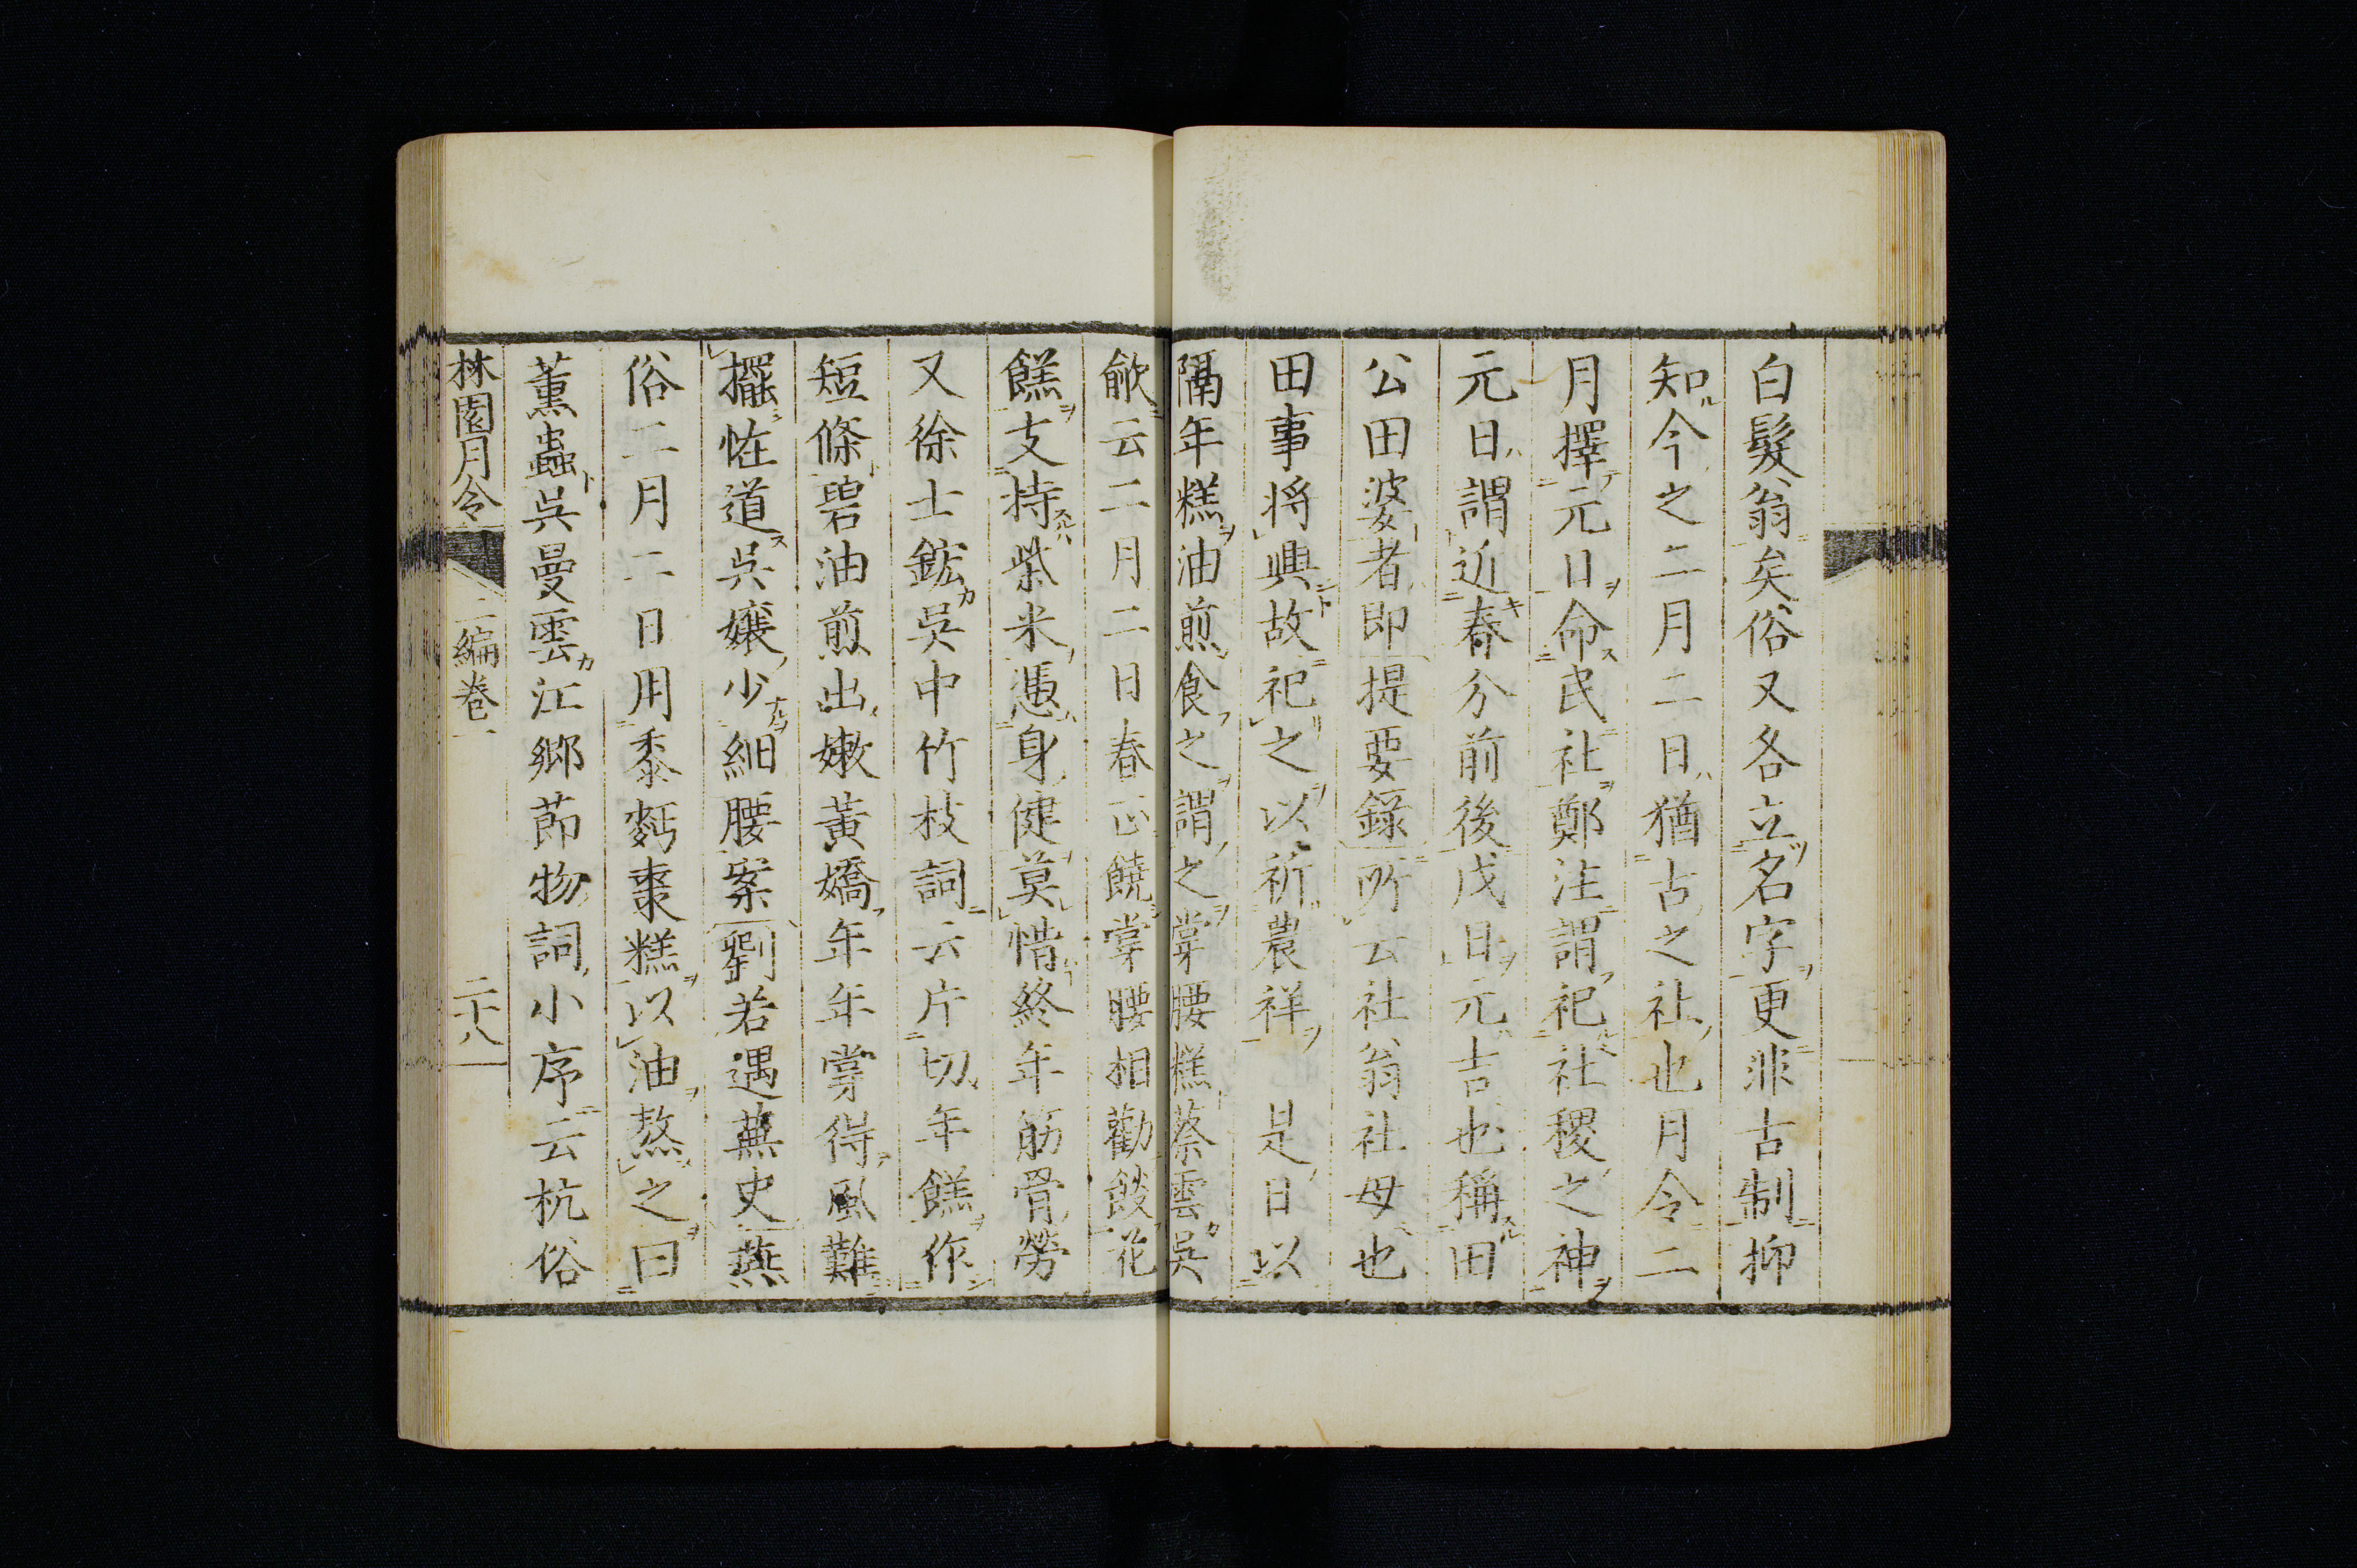 白髮翁矣俗又各立名字更非古制抑
知今之二月二日猶古之社也月令二
月擇元日命民社鄭注謂祀社稷之神
元日謂近春分前後戊日元吉也稱田
公田婆者即提要錄所云社翁社母也
田事將興故祀之以祈農祥　是日以
隔年糕油煎食之謂之撑腰糕蔡雲吳
歈云二月二日春正饒撑腰相勸餤花
餻支持柴米憑身健莫惜終年筋骨勞
又徐士鋐吳中竹枝詞云片切年餻作
短條碧油煎出嫩黃嬌年年撑得風難
擺怪道吳孃少細腰案劉若遇蕪史燕
俗二月二日用黍麪棗糕以油熬之曰
薰蟲吳曼雲江鄉節物詞小序云杭俗
林園月令
二編卷一
二十八